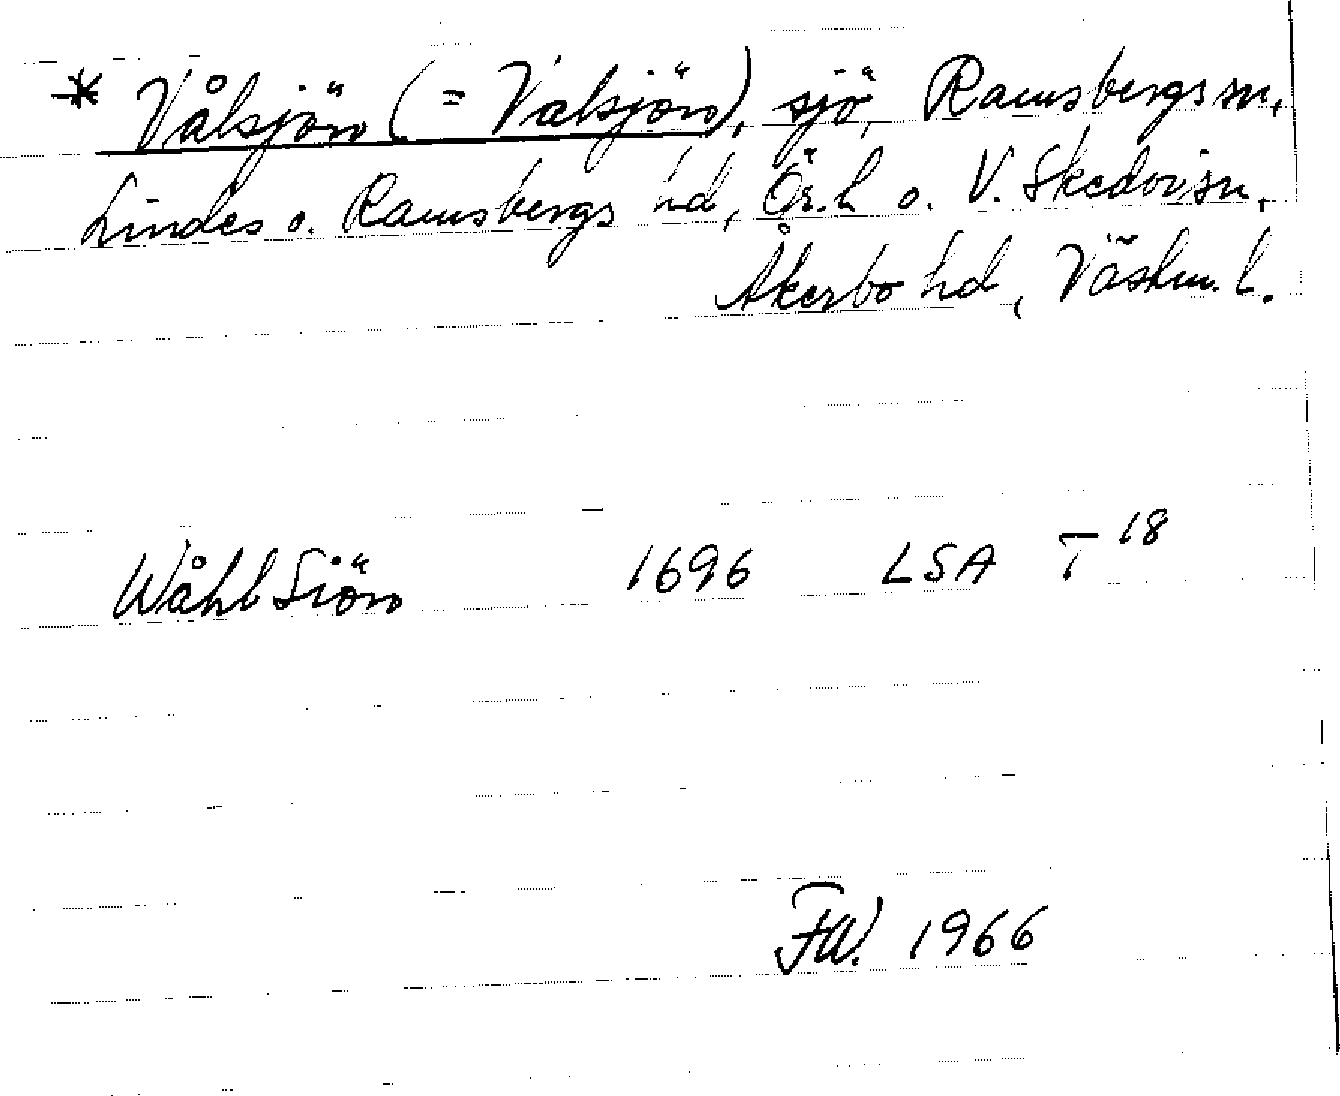 * Vålsjön (= Valsjön), sjö, Ramsbergs sn,
Lindes o. Ramsbergs hd, Ör. l. o. V. Skedvi sn,
Åkerbo hd, Västm. l.
Wåhl Siön 1696 LSA T 18
FW. 1966